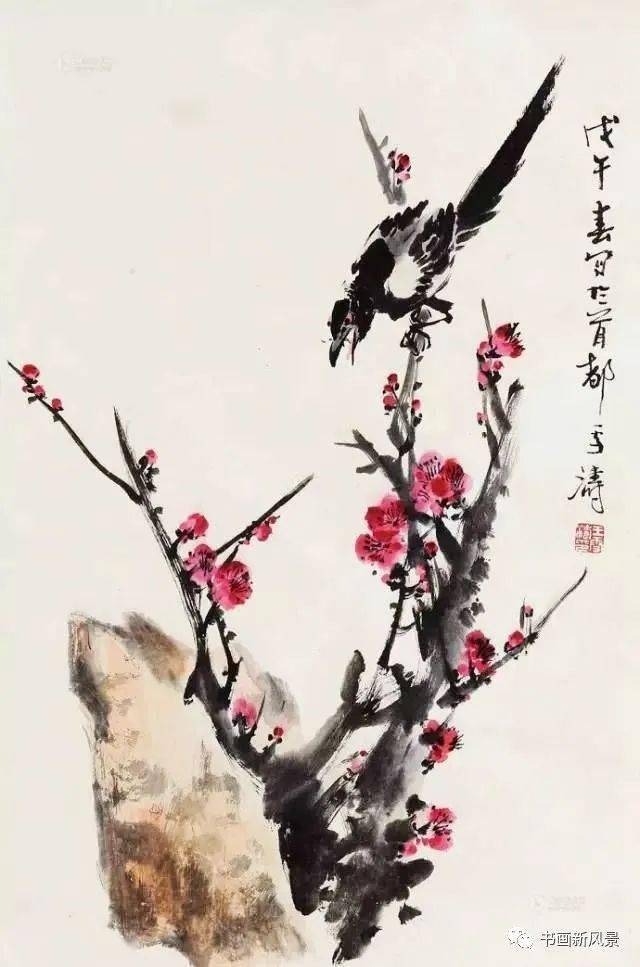 戊午春写于首都雪涛
书画新风景